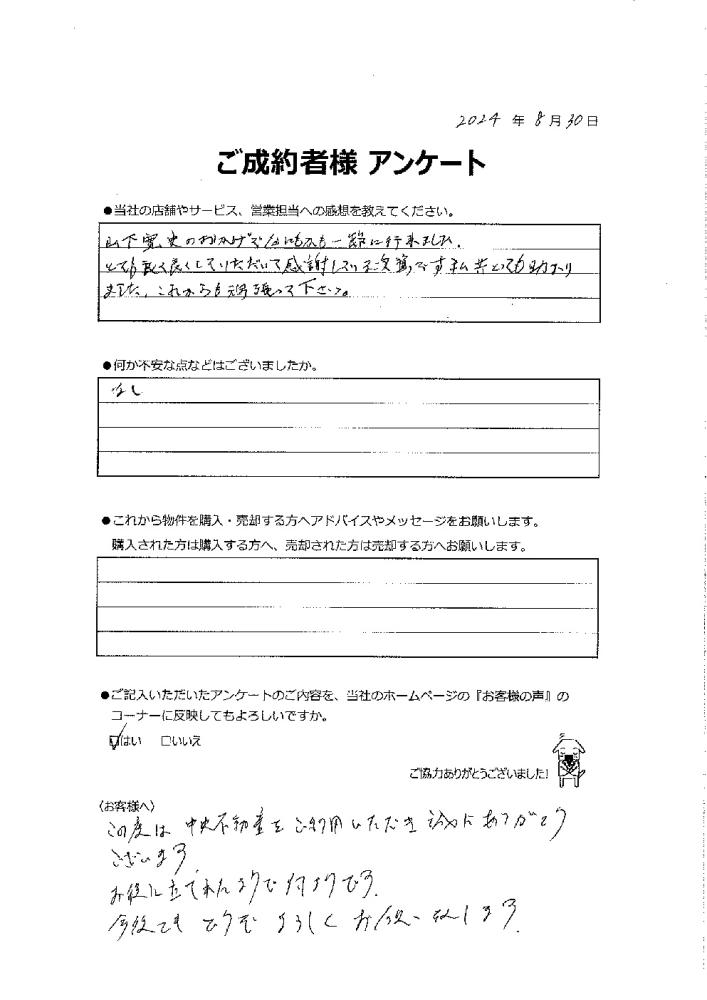 2024 年 8 月 30 日
ご成約者様 アンケート
●当社の店舗やサービス、営業担当への感想を教えてください。
山下寛史のおかげで
とても良くしていただいて感謝している次第です 私共とっても助かり
ました。これからも頑張って下さい。
●何か不安な点などはございましたか。
なし
●これから物件を購入・売却する方へアドバイスやメッセージをお願いします。
購入された方は購入する方へ、売却された方は売却する方へお願いします。
●ご記入いただいたアンケートのご内容を、当社のホームページの『お客様の声』の
コーナーに反映してもよろしいですか。
☑はい □いいえ
ご協力ありがとうございました!
〈お客様へ〉
この度は 中央不動産を ご利用いただき 誠にありがとう
ございます
お役に立てれん
今後とも どうぞ よろしく お願い致します